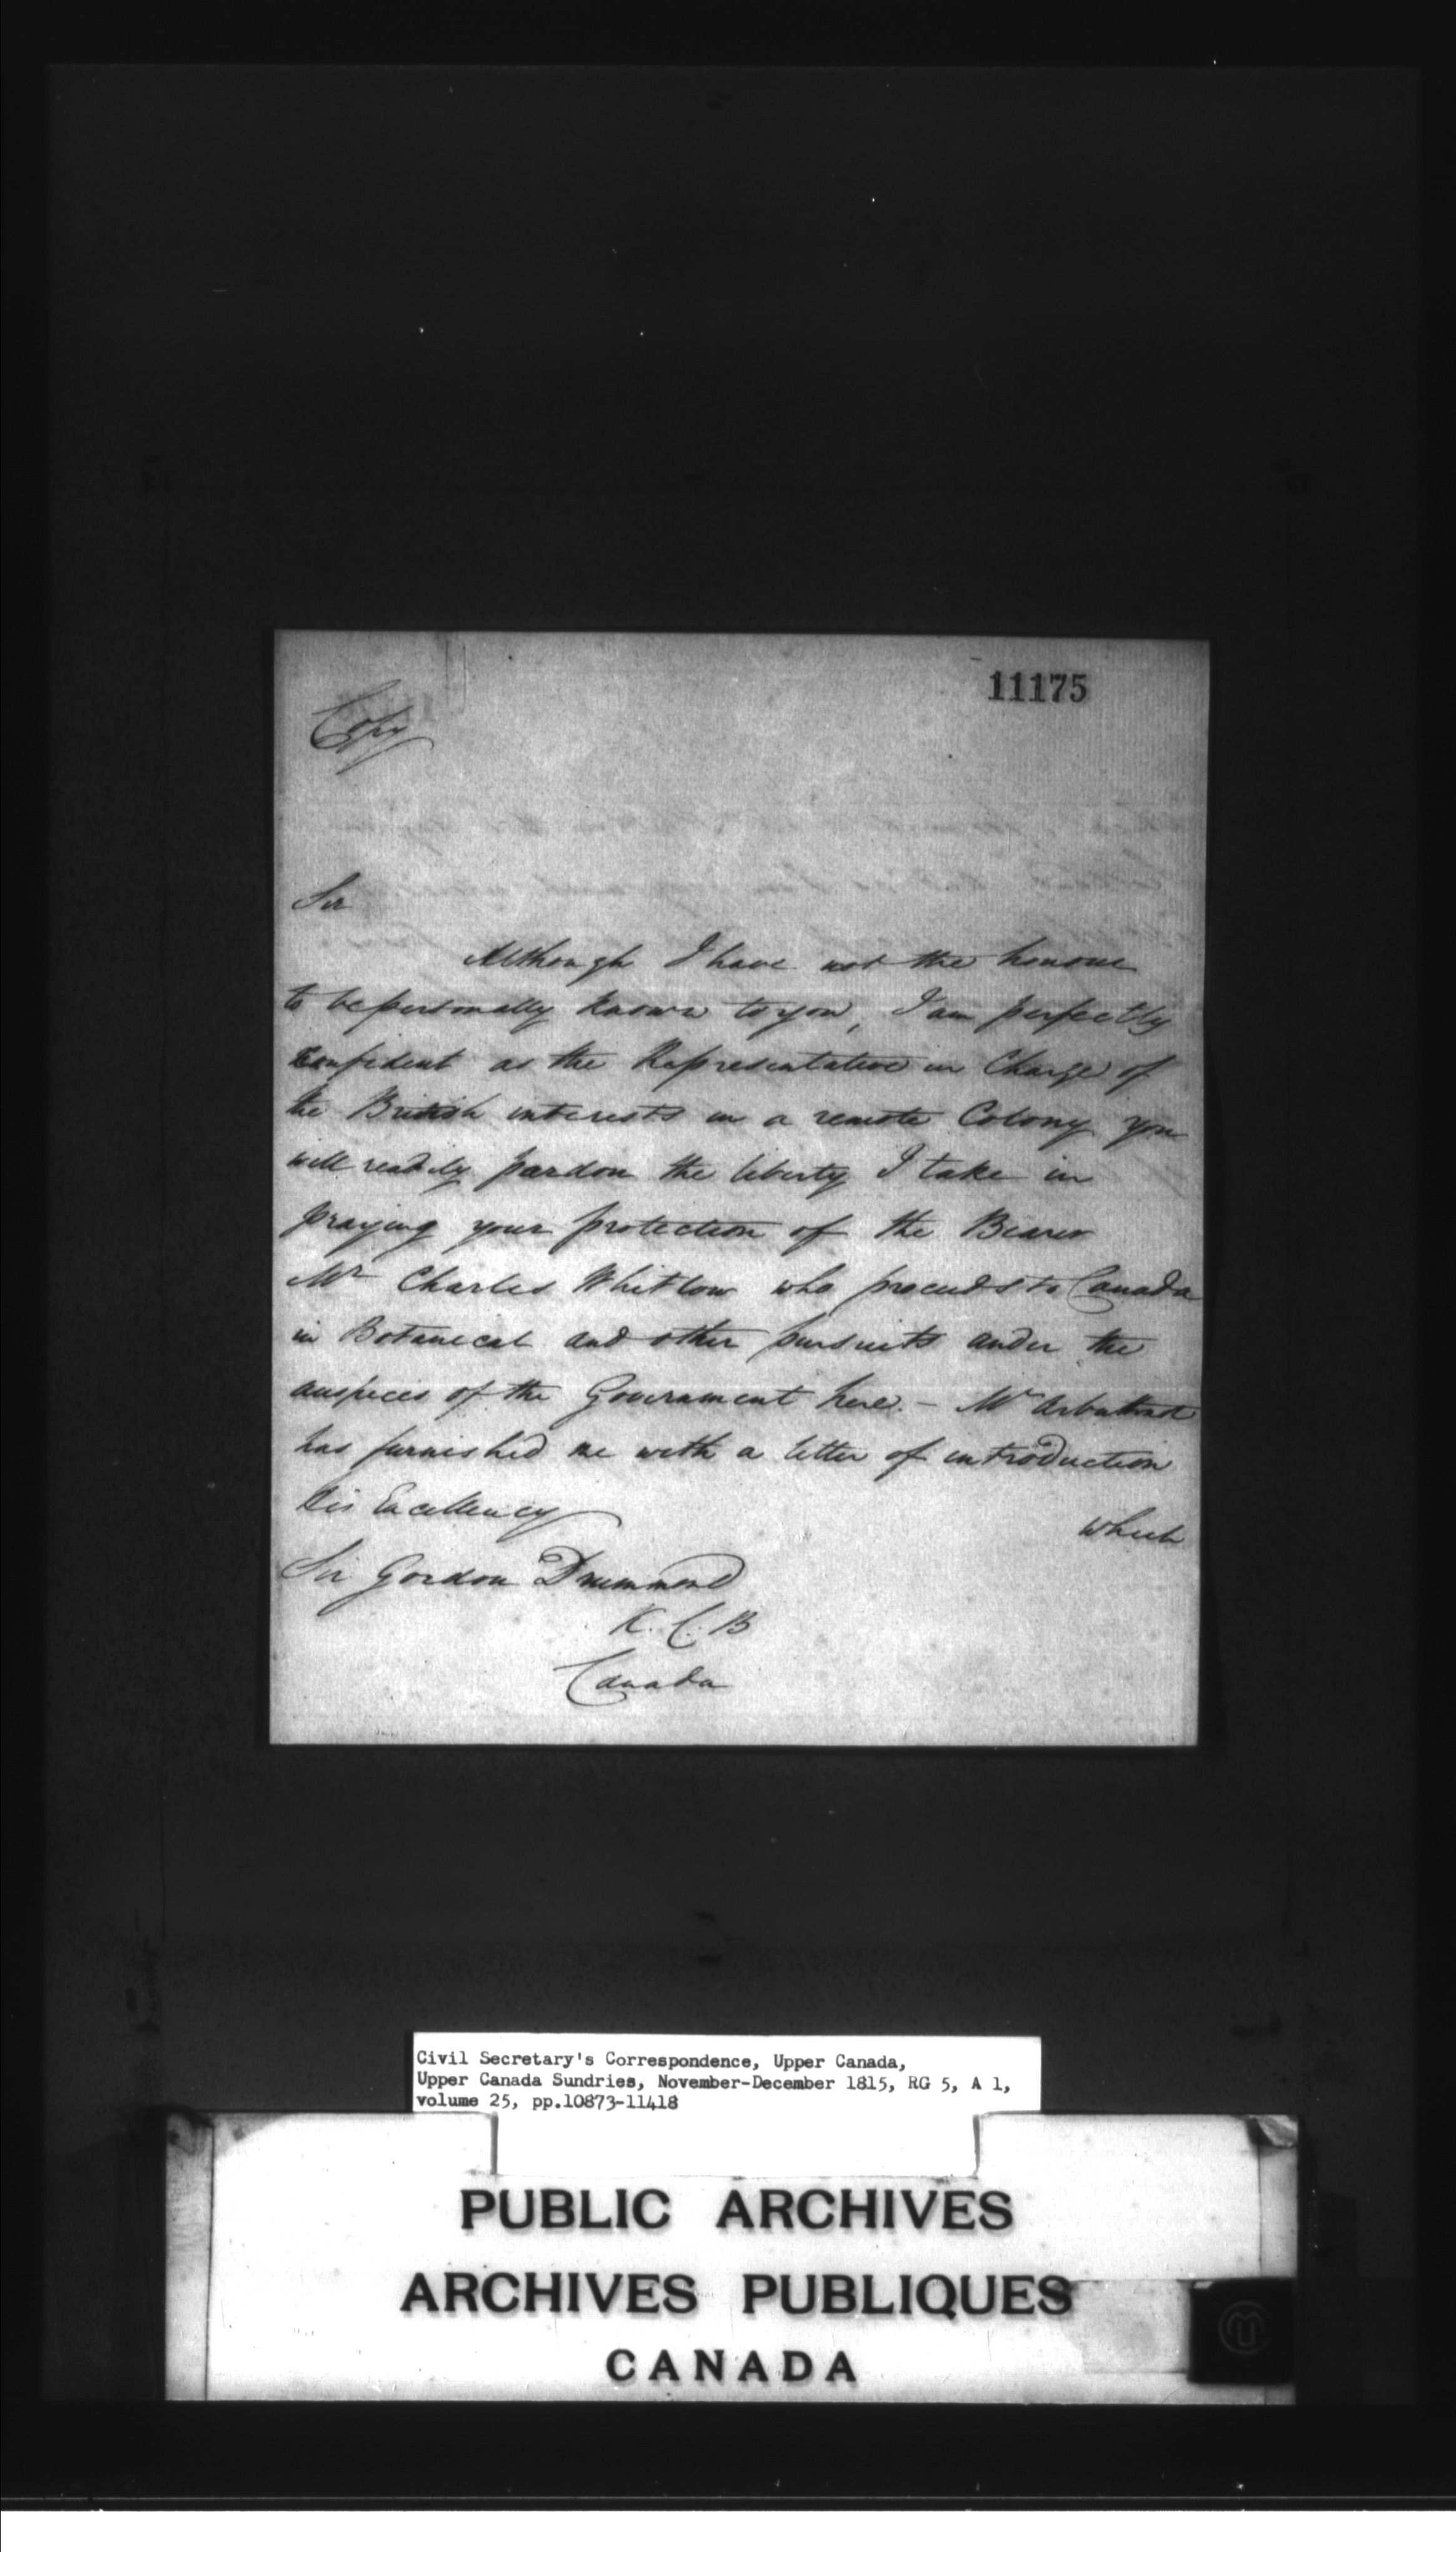 11175
Copy
Sir
Although I have not the honour
to be personally known to you, I am perfectly
Confident as the Representative in Charge of
the British interests in a remote Colony you
will readily pardon the liberty I take in
praying your protection of the Bearer
Mr Charles Whitlow who proceeds to Canada
in Botanecal and other pursuits under the
auspices of the Government here. - Mr Arbuthnot
has furnished me with a letter of introduction
which
His Excellency
Sir Gordon Drummond
K. C. B
Canada
Civil Secretary's Correspondence, Upper Canada,
Upper Canada Sundries, November-December 1815, RG 5, A 1,
volume 25, pp.10873-11418
PUBLIC ARCHIVES
ARCHIVES PUBLIQUES
CANADA